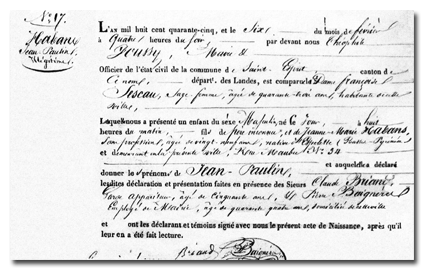 N.º 17.
Habans
Jean-Paulin
L'an mil huit cent quarante-cinq, et le Six du mois de février
à quatre heures du soir par devant nous Théophile
Officier de l'état civil de la commune de Saint-Esprit canton de
idem, départ. des Landes, est comparue Dame françoise
Sage femme, âgée de quarante trois ans, habitante de cette
ville,
Laquelle nous a présenté un enfant du séxe Masculin, né ce jour à huit
heures du matin, fils de père inconnu, et de Jeanne Marie Habans,
sans profession, âgée de vingt neuf ans, native
et demeurant cette présente ville, Rue N.º 34
et auquel elle a déclaré
donner le prénom de Jean-Paulin
lesdites déclaration et présentation faites en présence des Sieurs Claude Briand
âgé de cinquante ans, et Pierre Baignère
Employé de Mairie, âgé de quarante quatre ans, domiciliés de cette ville
et ont les déclarants et témoins signé avec nous le présent acte de Naissance, après qu'il
leur en a été fait lecture.
Briand Baignère